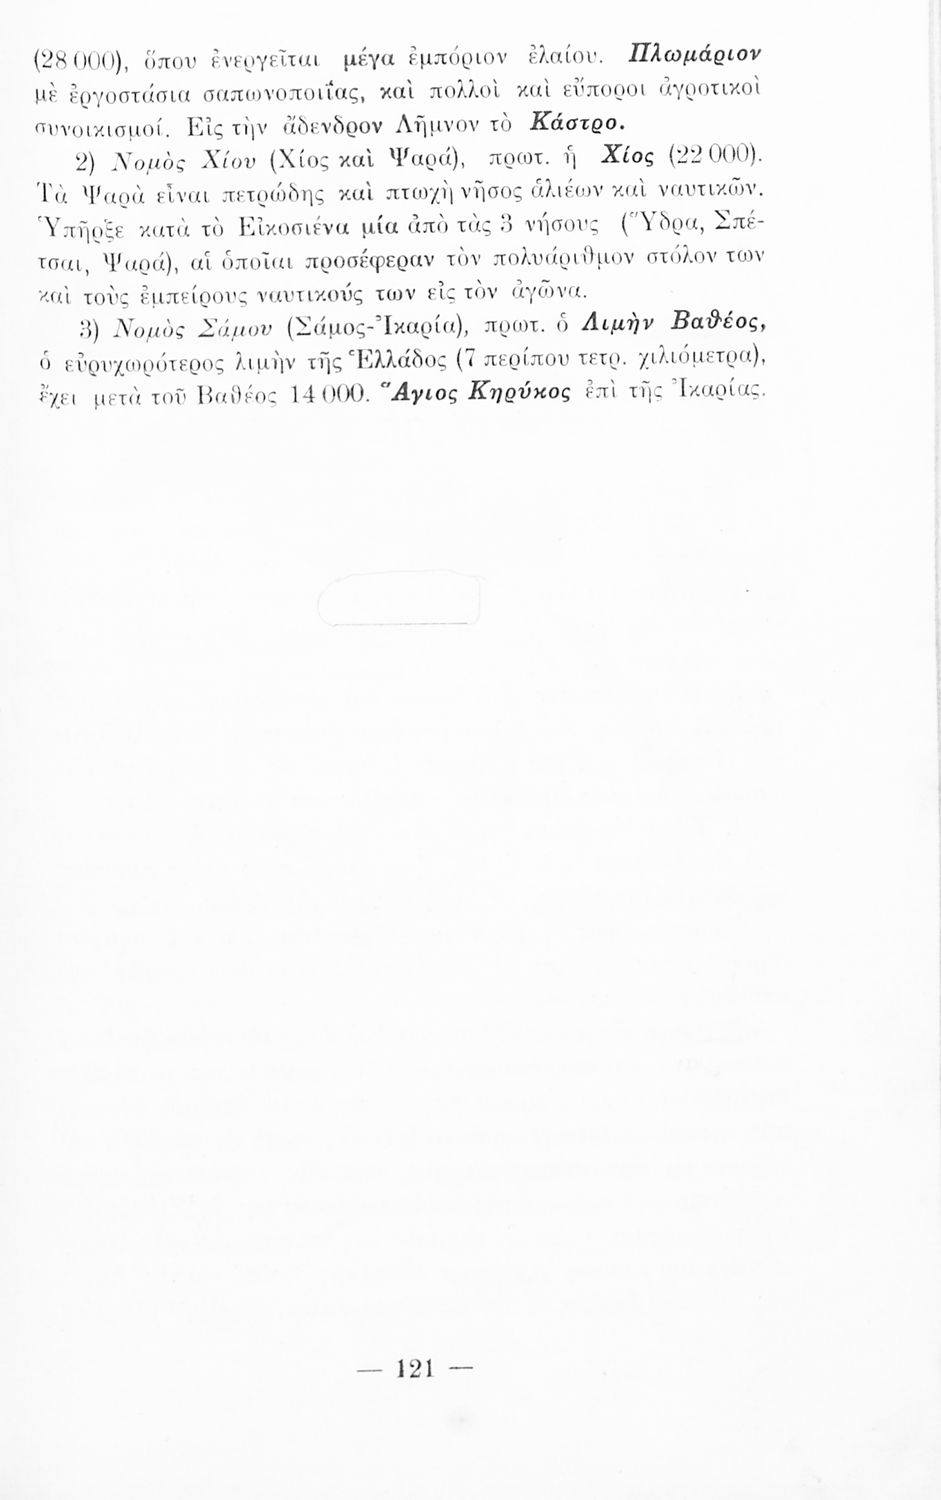 (28 000), ὅπου ἐνεργεῖται μέγα ἐμπόριον ἐλαίου. Πλωμάριον
μὲ ἐργοστάσια σαπωνοποιΐας, καὶ πολλοὶ καὶ εὔποροι ἀγροτικοὶ
συνοικισμοί. Εἰς τὴν ἄδενδρον Λῆμνον τὸ Κάστρο.
2) Νομὸς Χίου (Χίος καὶ Ψαρά), πρωτ. ἡ Χίος (22 000).
Τὰ Ψαρὰ εἶναι πετρώδης καὶ πτωχὴ νῆσος ἁλιέων καὶ ναυτικῶν.
Ὑπῆρξε κατὰ τὸ Εἰκοσιένα μία ἀπὸ τὰς 3 νήσους (Ὕδρα, Σπέ-
τσαι, Ψαρά), αἱ ὁποῖαι προσέφεραν τὸν πολυάριθμον στόλον των
καὶ τοὺς ἐμπείρους ναυτικούς των εἰς τὸν ἀγῶνα.
3) Νομὸς Σάμου (Σάμος-Ἰκαρία), πρωτ. ὁ Λιμὴν Βαθέος,
ὁ εὐρυχωρότερος λιμὴν τῆς Ἑλλάδος (7 περίπου τετρ. χιλιόμετρα),
ἔχει μετὰ τοῦ Βαθέος 14 000. Ἅγιος Κηρύκος ἐπὶ τῆς Ἰκαρίας.
— 121 —